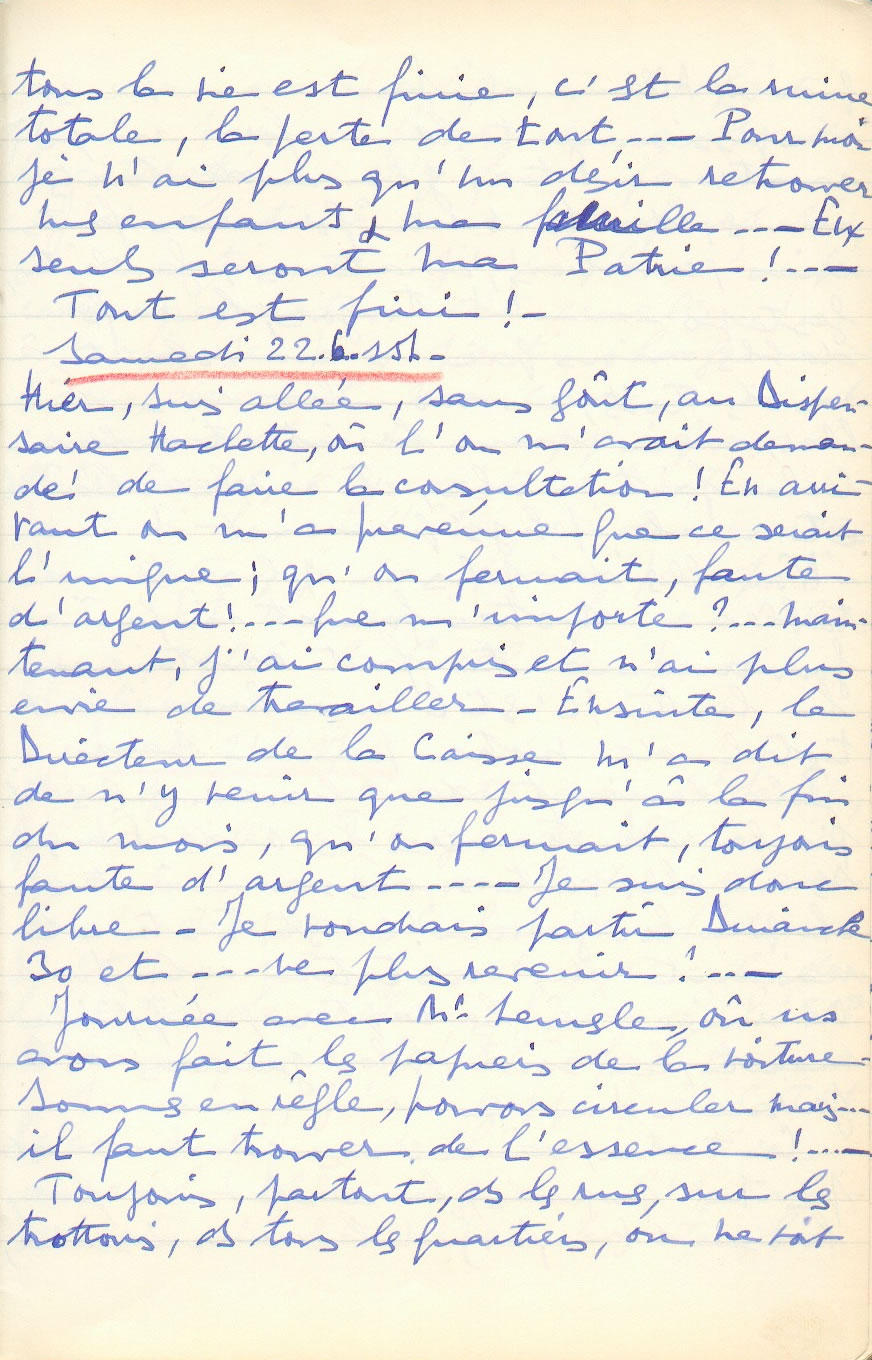 tous la vie est finie, c'est la ruine
totale, la perte de tout, --- Pour moi
je n'ai plus qu'un désir retrouver
mes enfants & ma famille --- Eux
seuls seront ma Patrie ! ---
Tout est fini ! -
Samedi 22.6.
Hier, suis allée, sans goût, au Dispen-
saire Hachette, où l'on m'avait deman-
dé de faire la consultation ! En arri-
vant on m'a prévenue que ce serait
l'unique ; qu'on fermait, faute
d'argent ! --- Que m'importe ? --- Main-
tenant, j'ai compris et n'ai plus
envie de travailler - Ensuite, le
Directeur de la Caisse m'a dit
de n'y venir que jusqu'à la fin
du mois, qu'on fermait, toujours
faute d'argent ---- Je suis donc
libre - Je voudrais partir Dimanche
30 et --- ne plus revenir ! ---
Journée avec Mr où ns
avons fait les papiers de la voiture -
Somms en règle, pouvons circuler mais ---
il faut trouver de l'essence ! ---
Toujours, partout, ds les rues, sur les
trottoirs, ds tous les quartiers, on ne voit